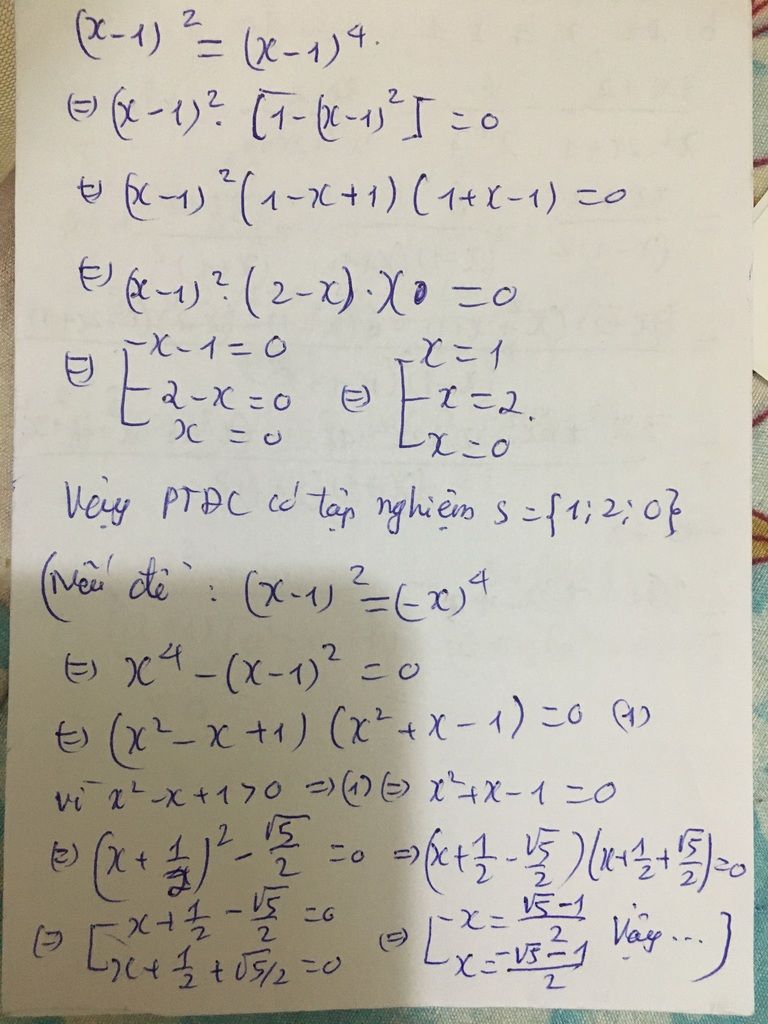 (x-1)² = (x-1)⁴.
⇔ (x-1)². [1-(x-1)²] = 0
⇔ (x-1)²(1-x+1)(1+x-1) = 0
⇔ (x-1)².(2-x).x = 0
⇔ [ x-1=0 ⇔ [ x=1
2-x=0 x=2.
x=0 x=0
Vậy PTĐC có tập nghiệm S={1;2;0}
(Nếu đề : (x-1)² = (-x)⁴
⇔ x⁴-(x-1)² = 0
⇔ (x²-x+1)(x²+x-1) = 0 (1)
vì x²-x+1>0 ⇒(1)⇔ x²+x-1=0
⇔ (x+1/2)² - √5/2 = 0 ⇒(x+1/2-√5/2)(x+1/2+√5/2)=0
⇔ [ x+1/2-√5/2=0 ⇔ [ x=(√5-1)/2 Vậy...)
x+1/2+√5/2=0 x=(-√5-1)/2